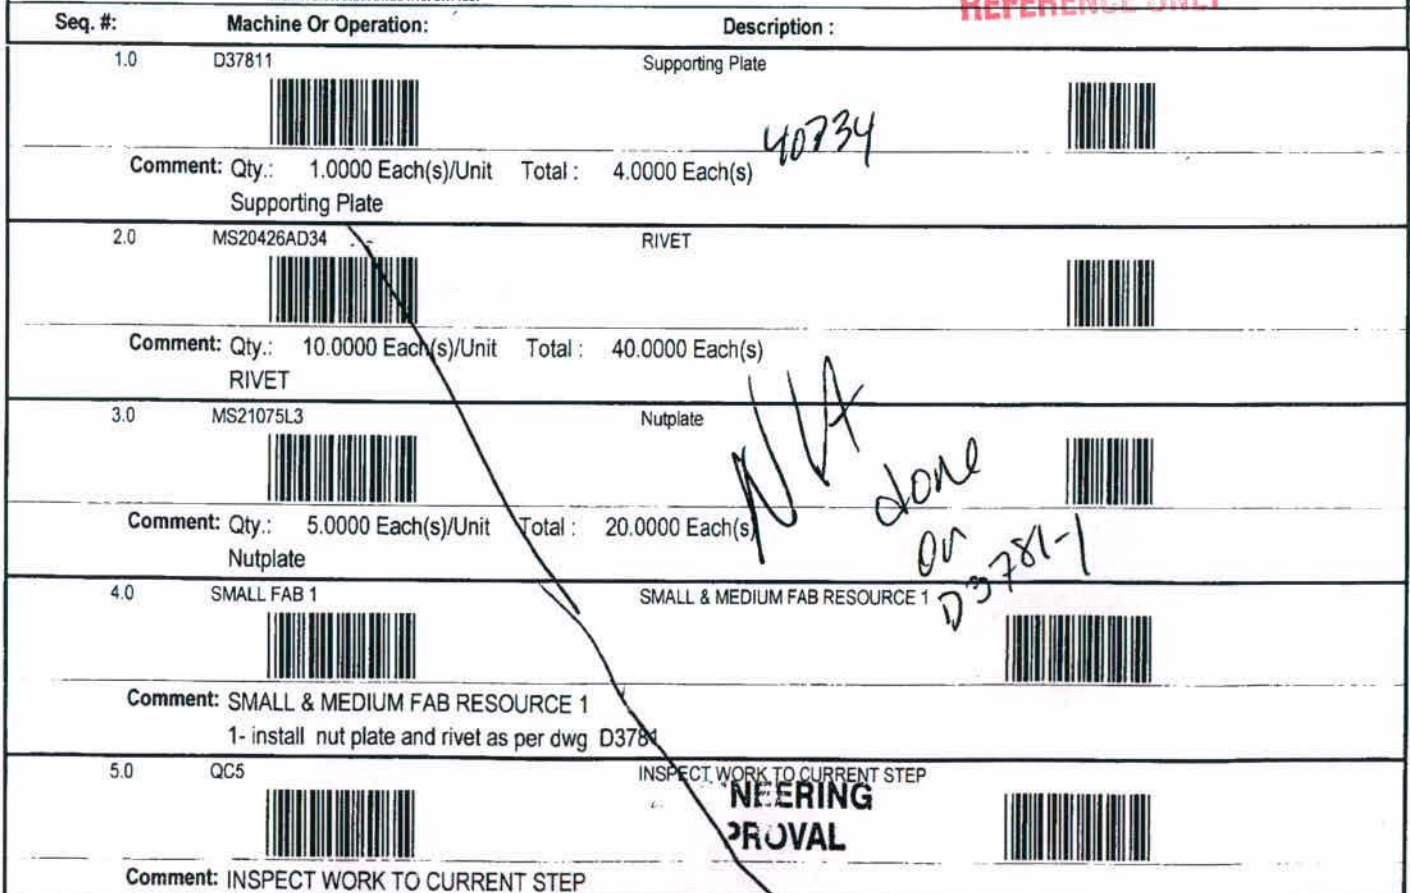 REFERENCE ONLY
Seq. #: Machine Or Operation: Description :
1.0 D37811 Supporting Plate
40734
Comment: Qty.: 1.0000 Each(s)/Unit Total : 4.0000 Each(s)
Supporting Plate
2.0 MS20426AD34 RIVET
Comment: Qty.: 10.0000 Each(s)/Unit Total : 40.0000 Each(s)
RIVET
3.0 MS21075L3 Nutplate
N/A
done
on
D3781-1
Comment: Qty.: 5.0000 Each(s)/Unit Total : 20.0000 Each(s)
Nutplate
4.0 SMALL FAB 1 SMALL & MEDIUM FAB RESOURCE 1
Comment: SMALL & MEDIUM FAB RESOURCE 1
1- install nut plate and rivet as per dwg D3781
5.0 QC5 INSPECT WORK TO CURRENT STEP
NEERING
PROVAL
Comment: INSPECT WORK TO CURRENT STEP